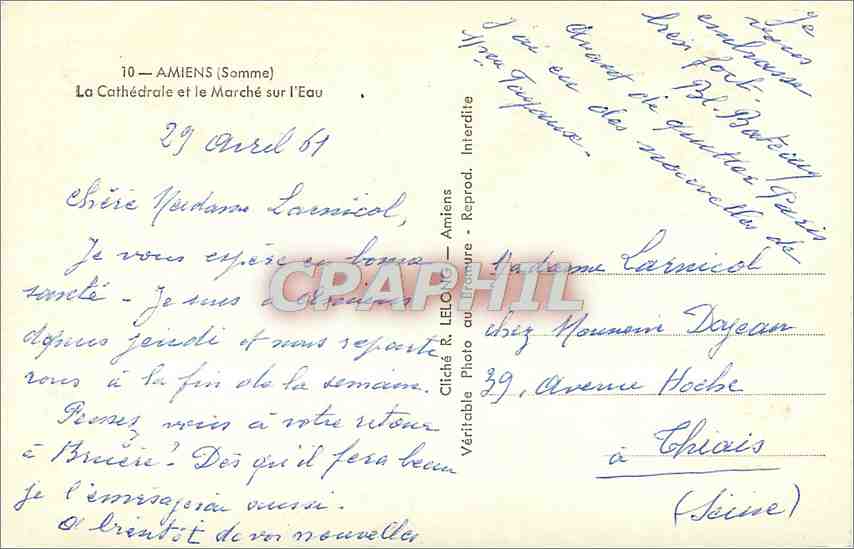 10 — AMIENS (Somme)
La Cathédrale et le Marché sur l'Eau
29 Avril 61
Chère Madame Larnicol,
Je vous espère en bonne
santé - Je suis à Amiens
depuis jeudi et nous reparti
rons à la fin de la semaine.
Pensez vous à votre retour
à ? Dès qu'il fera beau
je l'envisagerai aussi.
A bientôt de vos nouvelles
Je
vous
embrasse
bien fort.
Bl.
Avant de quitter Paris
j'ai eu des nouvelles de
Mme
Cliché R. LELONG — Amiens
Véritable Photo au Bromure - Reprod. Interdite
Madame Larnicol
chez Monsieur Dajean
39, Avenue Hoche
à Thiais
(Seine)
CPAPHIL